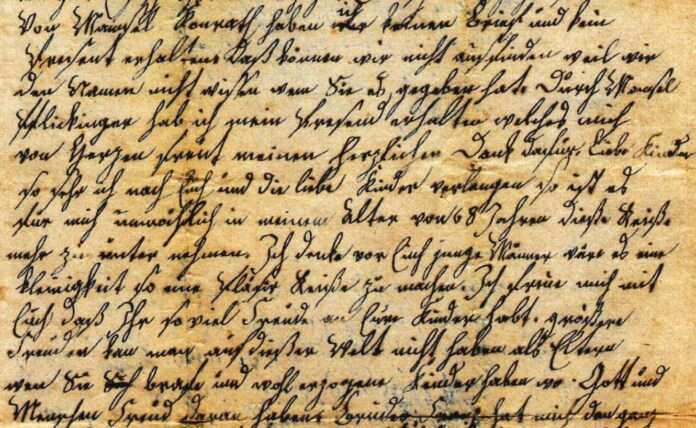 Von Mamsel Konrath haben ich keinen Brief und kein
Present erhalten Daß können wir nicht ausfinden weil wir
den Namen nicht wissen wem Sie es gegeben hat. Durch Mamsel
Flickinger hab ich mein Presend erhalten welches mich
von Herzen freut meinen herzlichen Dank dafür. Liebe Kinder
so sehr ich nach Euch und die liebe Kinder verlangen so ist es
für mich unmöhlich in meinem Alter von 68 Jahren dieße Reiße
mehr zu unter nehmen. Ich denke vor Euch junge Männer wäre es eine
kleinigkeit so eine Pläsir Reiße zu machen. Ich freue mich mit
Euch daß Ihr so viel Freude an Eure Kinder habt. größere
Freuden kan man auf dießer Welt nicht haben als Eltern
wen Sie brafe und wohl erzogene Kinder haben wo Gott und
Menschen Freud daran haben. Bruder hat mich den ganz